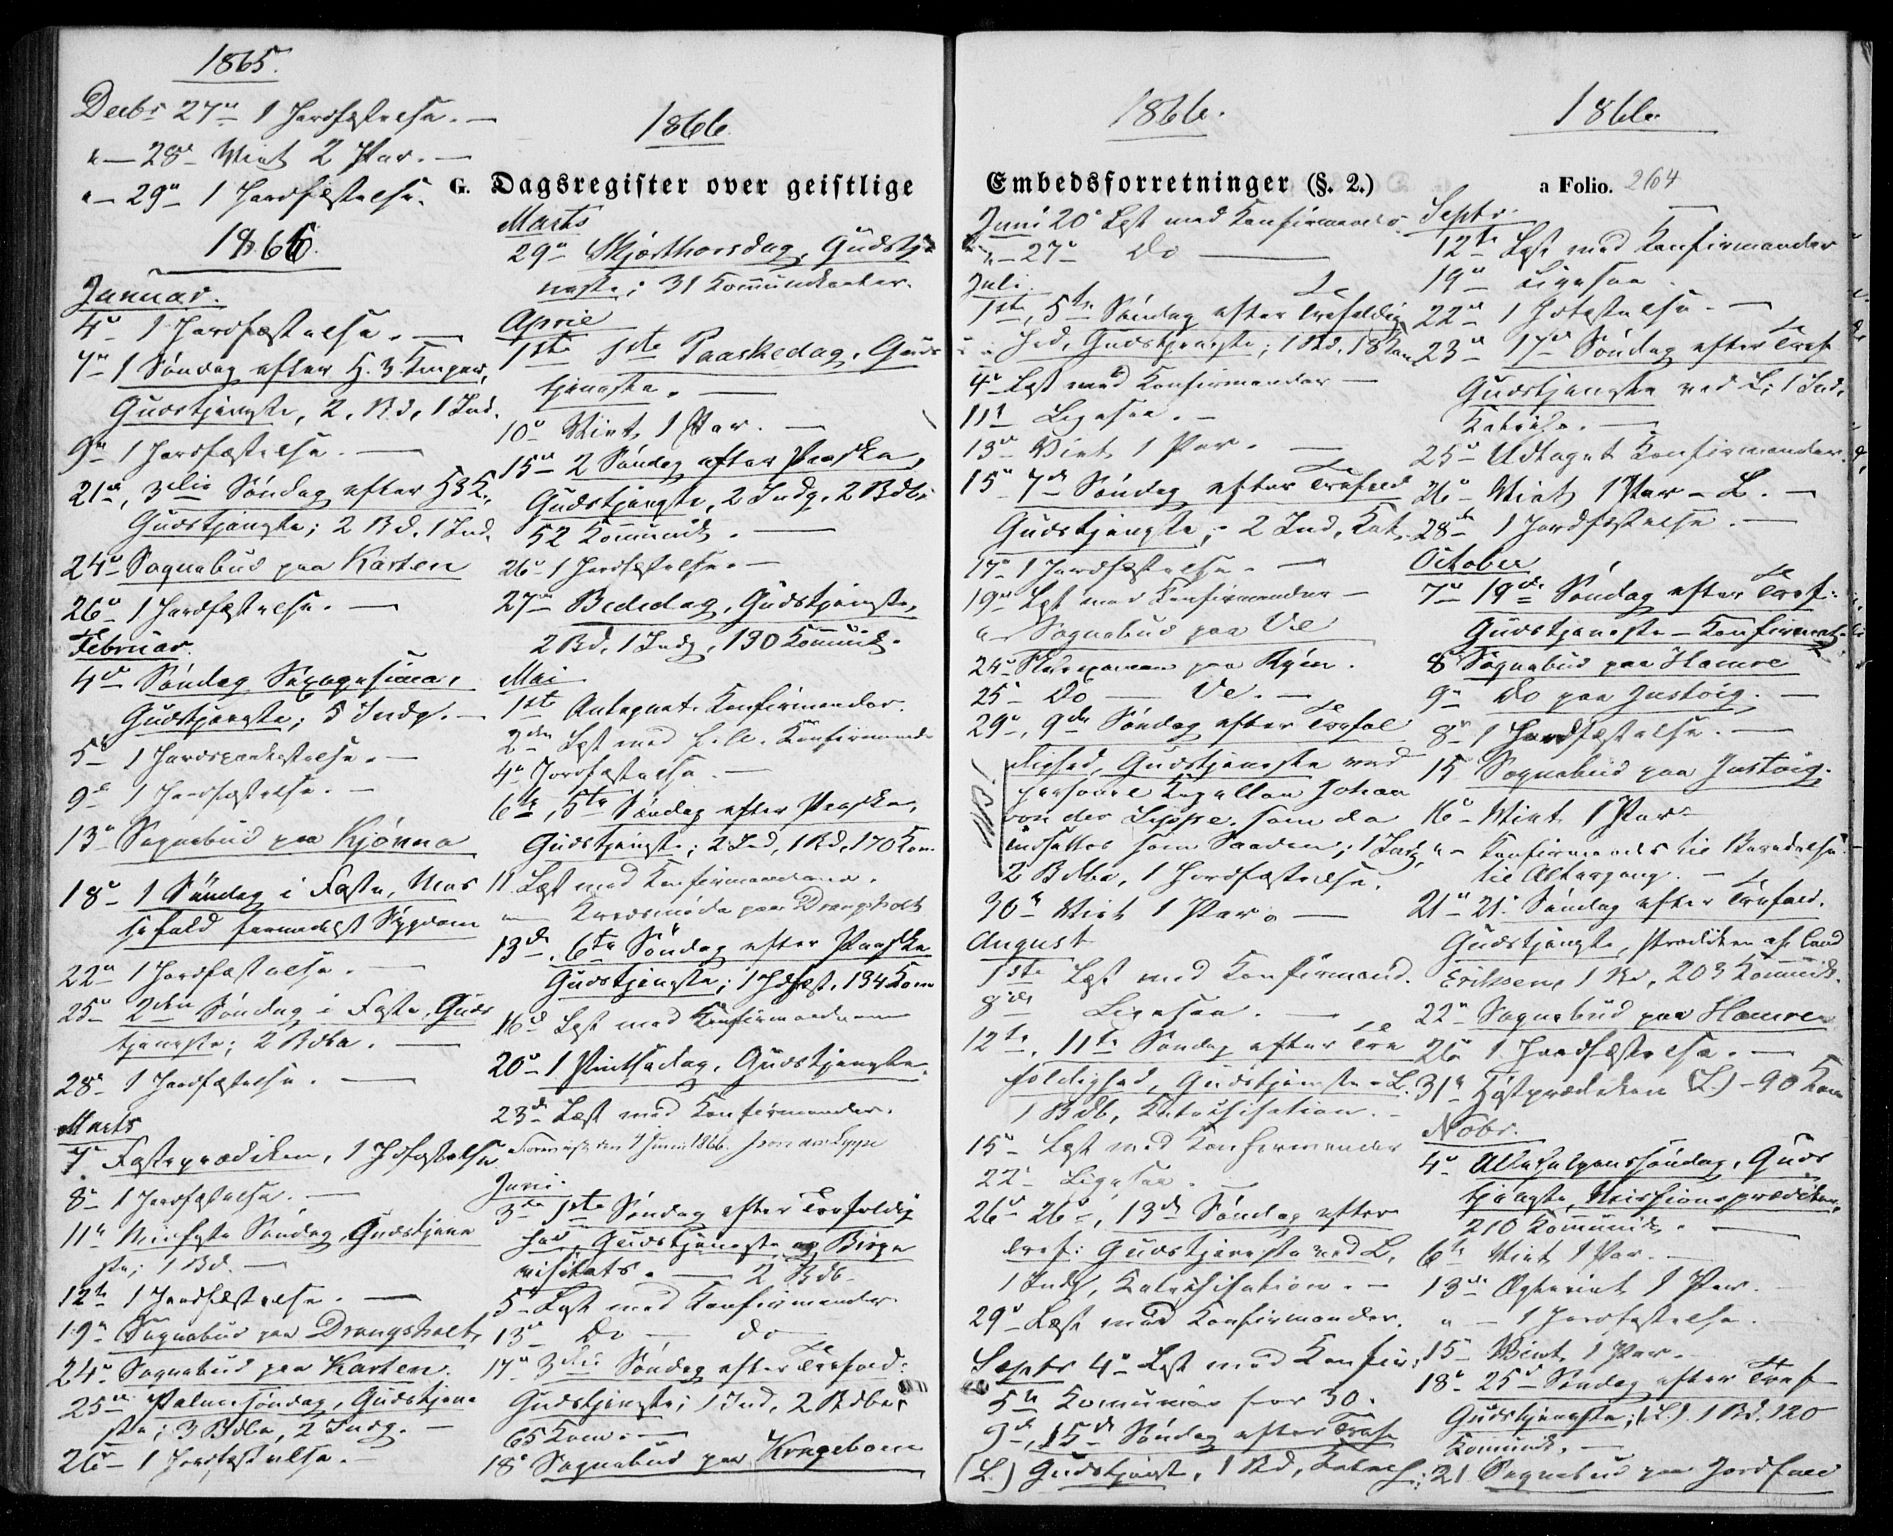 1865.
Decbr 27de 1 Jordfæstelse. —
" — 28de Viet 2 Par. —
" — 29de 1 Jordfæstelse.
1866.
Januar.
4de 1 Jordfæstelse. —
7de 1 Søndag efter H. 3 Konger,
Gudstjeneste, 2. Bd, 1 Ind.
9de 1 Jordfæstelse. —
21de, 3die Søndag efter H3K,
Gudstjeneste; 2 Bd. 1 Ind.
24de Sognebud paa Karten
26de 1 Jordfæstelse. —
Februar.
4de Søndag Sexagesima,
Gudstjeneste; 5 Indg. —
5te 1 Jordspaakastelse. —
9de 1 Jordfæstelse. —
13de Sognebud paa Kjønna
18de 1 Søndag i Faste, Mes
sefald formedelst Sygdom
22de 1 Jordfæstelse. —
25de 2den Søndag i Faste, Guds
tjeneste; 2 Bdbe. —
28de 1 Jordfæstelse. —
Marts
7de Fasteprædiken, 1 Jdfæstelse
8de 1 Jordfæstelse. —
11te Midfaste Søndag, Gudstjene
ste; 1 Bd. —
12te 1 Jordfæstelse. —
19de Sognebud paa Drangsholt,
24de Sognebud paa Karten.
25de Palmesøndag, Gudstjene
ste; 3 Bdbe, 2 Indg. —
26de 1 Jordfæstelse. —
1866.
G. Dagsregister over geistlige
Marts
29de Skjærthorsdag, Gudstje
neste; 31 Kommunikanter.
April
1ste 1ste Paaskedag, Guds
tjeneste. —
10de Viet 1 Par. —
15de 2 Søndag efter Paaske,
Gudstjeneste, 2 Indg. 2 Bdbe
52 Kommunik. —
26de 1 Jordfæstelse. —
27de Bededag, Gudstjeneste,
2 Bd, 1 Indg, 130 Kommunik.
Mai
1ste Antegnet Konfirmander.
2den Læst med Konfirmande
4de Jordfæstelse. —
6te, 5te Søndag efter Paaske,
Gudstjeneste; 2 Ind, 1 Bd, 170 Kom.
11 Læst med Konfirmanderne.
" — Kredsmøde paa Drangsholt
13de, 6te Søndag efter Paaske
Gudstjeneste; 1 Jdfæst. 134 Kom
16de Læst med Konfirmanderne
20de 1 Pintsedag, Gudstjeneste.
23de Læst med Konfirmander.
Forevist den 2 Juni 1866. J von der Lippe
Juni.
3die 1ste Søndag efter Trefoldig
hed, Gudstjeneste og Bispe
visitats. — 2 Bdb.
5te Læst med Konfirmander.
13de Do — do —
17de 3die Søndag efter Trefold:
Gudstjeneste; 1 Ind, 2 Bdbe,
65 Kom. —
18de Sognebud paa Kongebone
1866.
Embedsforretninger (§. 2.)
Juni 20de Læst med Konfirmander
" — 27de Do —
Juli.
1ste, 5te Søndag efter Trefoldig
hed, Gudstjeneste; 1 Bd. 18 Kom
4de Læst med Konfirmander —
11te Ligesaa. —
13de Viet 1 Par. —
15de 7de Søndag efter Trefold
Gudstjeneste; 2 Ind, Kat.
17de 1 Jordfæstelse. —
19de Læst med Konfirmander —
" Sognebud paa Ve
24de Skoleexamen paa Ryen.
25de Do — Ve. —
29de, 9de Søndag efter Trefol
dighed, Gudstjeneste ved
personel Kapellan Johan
von der Lippe, som da
indsattes som Saadan; 1 Indg,
2 Bdbe, 1 Jordfæstelse.
30te Viet 1 Par. —
August
1ste Læst med Konfirmand.
8de Ligesaa. —
12te, 11te Søndag efter Tre
foldighed, Gudstjeneste — L.
1 Bdb, Katekisation. —
15de Læst med Konfirmander
22de Ligesaa. —
26de 26de, 13de Søndag efter
Tref: Gudstjeneste ved L,
1 Indg, Katekisation. —
29de Læst med Konfirmander.
Septr 4de Læst med Konfir:
5te Komunion for 30.
9de, 15de Søndag efter Tref
(L) Gudstjenest, 1 Bd, Katech:
1866.
a Folio. 264
Septr.
12te Læst med Konfirmander
19de Ligesaa
22de 1 Jdfæstelse. —
23de 17de Søndag efter Tref
Gudstjeneste ved L; 1 Ind,
Katekis. —
25de Udtaget Konfirmander.
26de Viet 1 Par — L. —
28de 1 Jordfæstelse. —
October
7de 19de Søndag efter Tref:
Gudstjeneste — Konfirmat.
8de Sognebud paa Hamre
9de Do paa Justvig. —
8de 1 Jordfæstelse. —
15 Sognebud paa Justvig.
16de Viet 1 Par
" — Konfirmerede til Beredelse
til Altergang. —
21de 21de Søndag efter Trefold.
Gudstjeneste, Prædiken af Cand
Eriksen, 1 Bd, 203 Kommunik.
22de Sognebud paa Hamre
26de 1 Jordfæstelse. —
31te Høstprædiken (L.) — 90 Kom
Nobr.
4de Allehelgenssøndag, Guds
tjeneste, Missionsprædiken,
210 Kommunik. —
6te Viet 1 Par. —
13de Ægteviet 1 Par. —
" — 1 Jordfæstelse.
15de Viet 1 Par. —
18de 25de Søndag efter Tref
Gudstjeneste; (L). 1 Bd. 120
Kommunik. —
21 Sognebud paa Jordfald